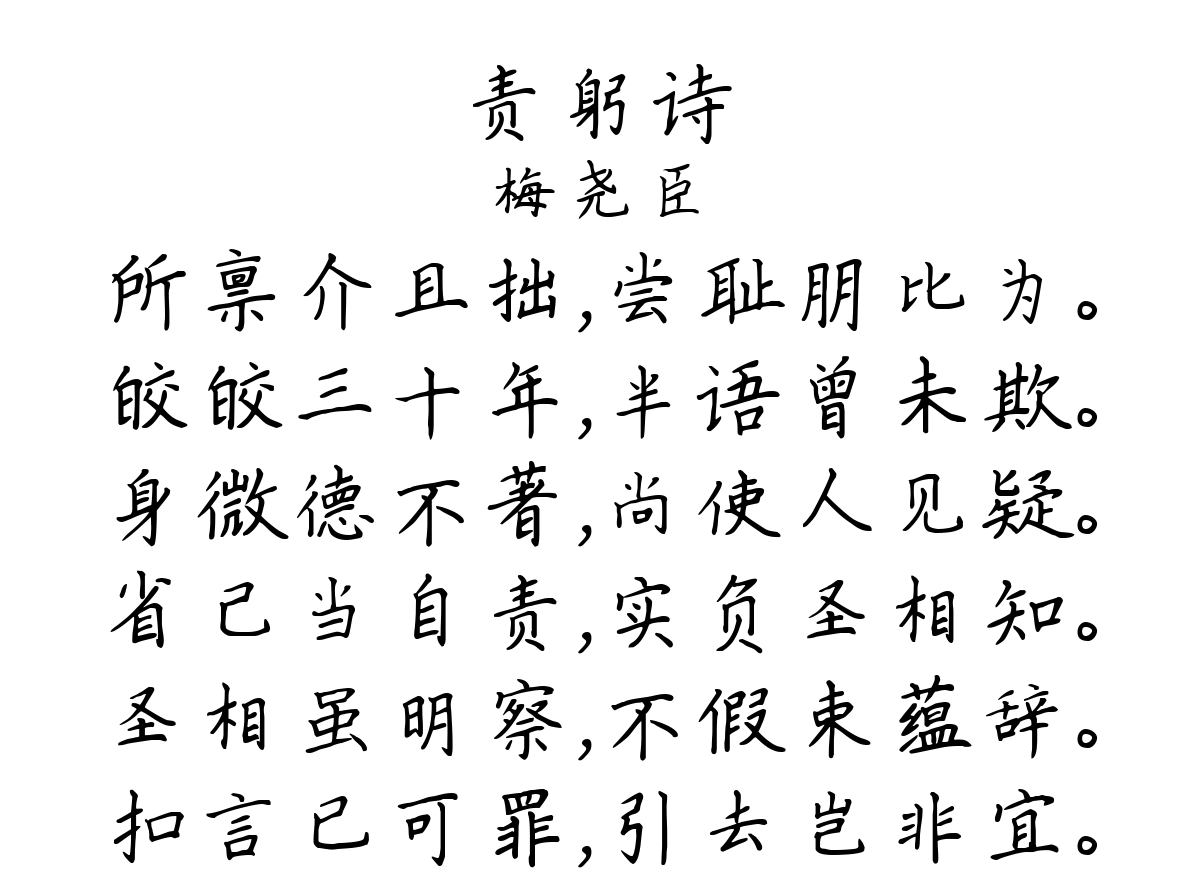 责躬诗
梅尧臣
所禀介且拙,尝耻朋比为。
皎皎三十年,半语曾未欺。
身微德不著,尚使人见疑。
省己当自责,实负圣相知。
圣相虽明察,不假束蕴辞。
扣言已可罪,引去岂非宜。